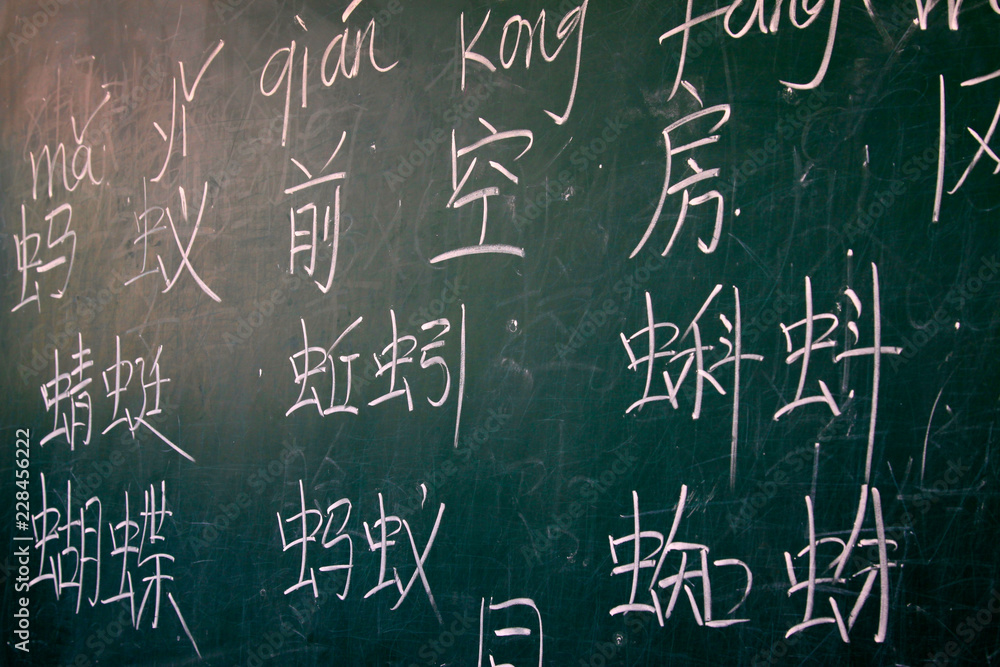 mǎ yǐ qián kong fang
蚂 蚁 前 空 房
蜻蜓 蚯蚓 蝌蚪
蝴蝶 蚂蚁 蜘蛛
Adobe Stock | 228456222